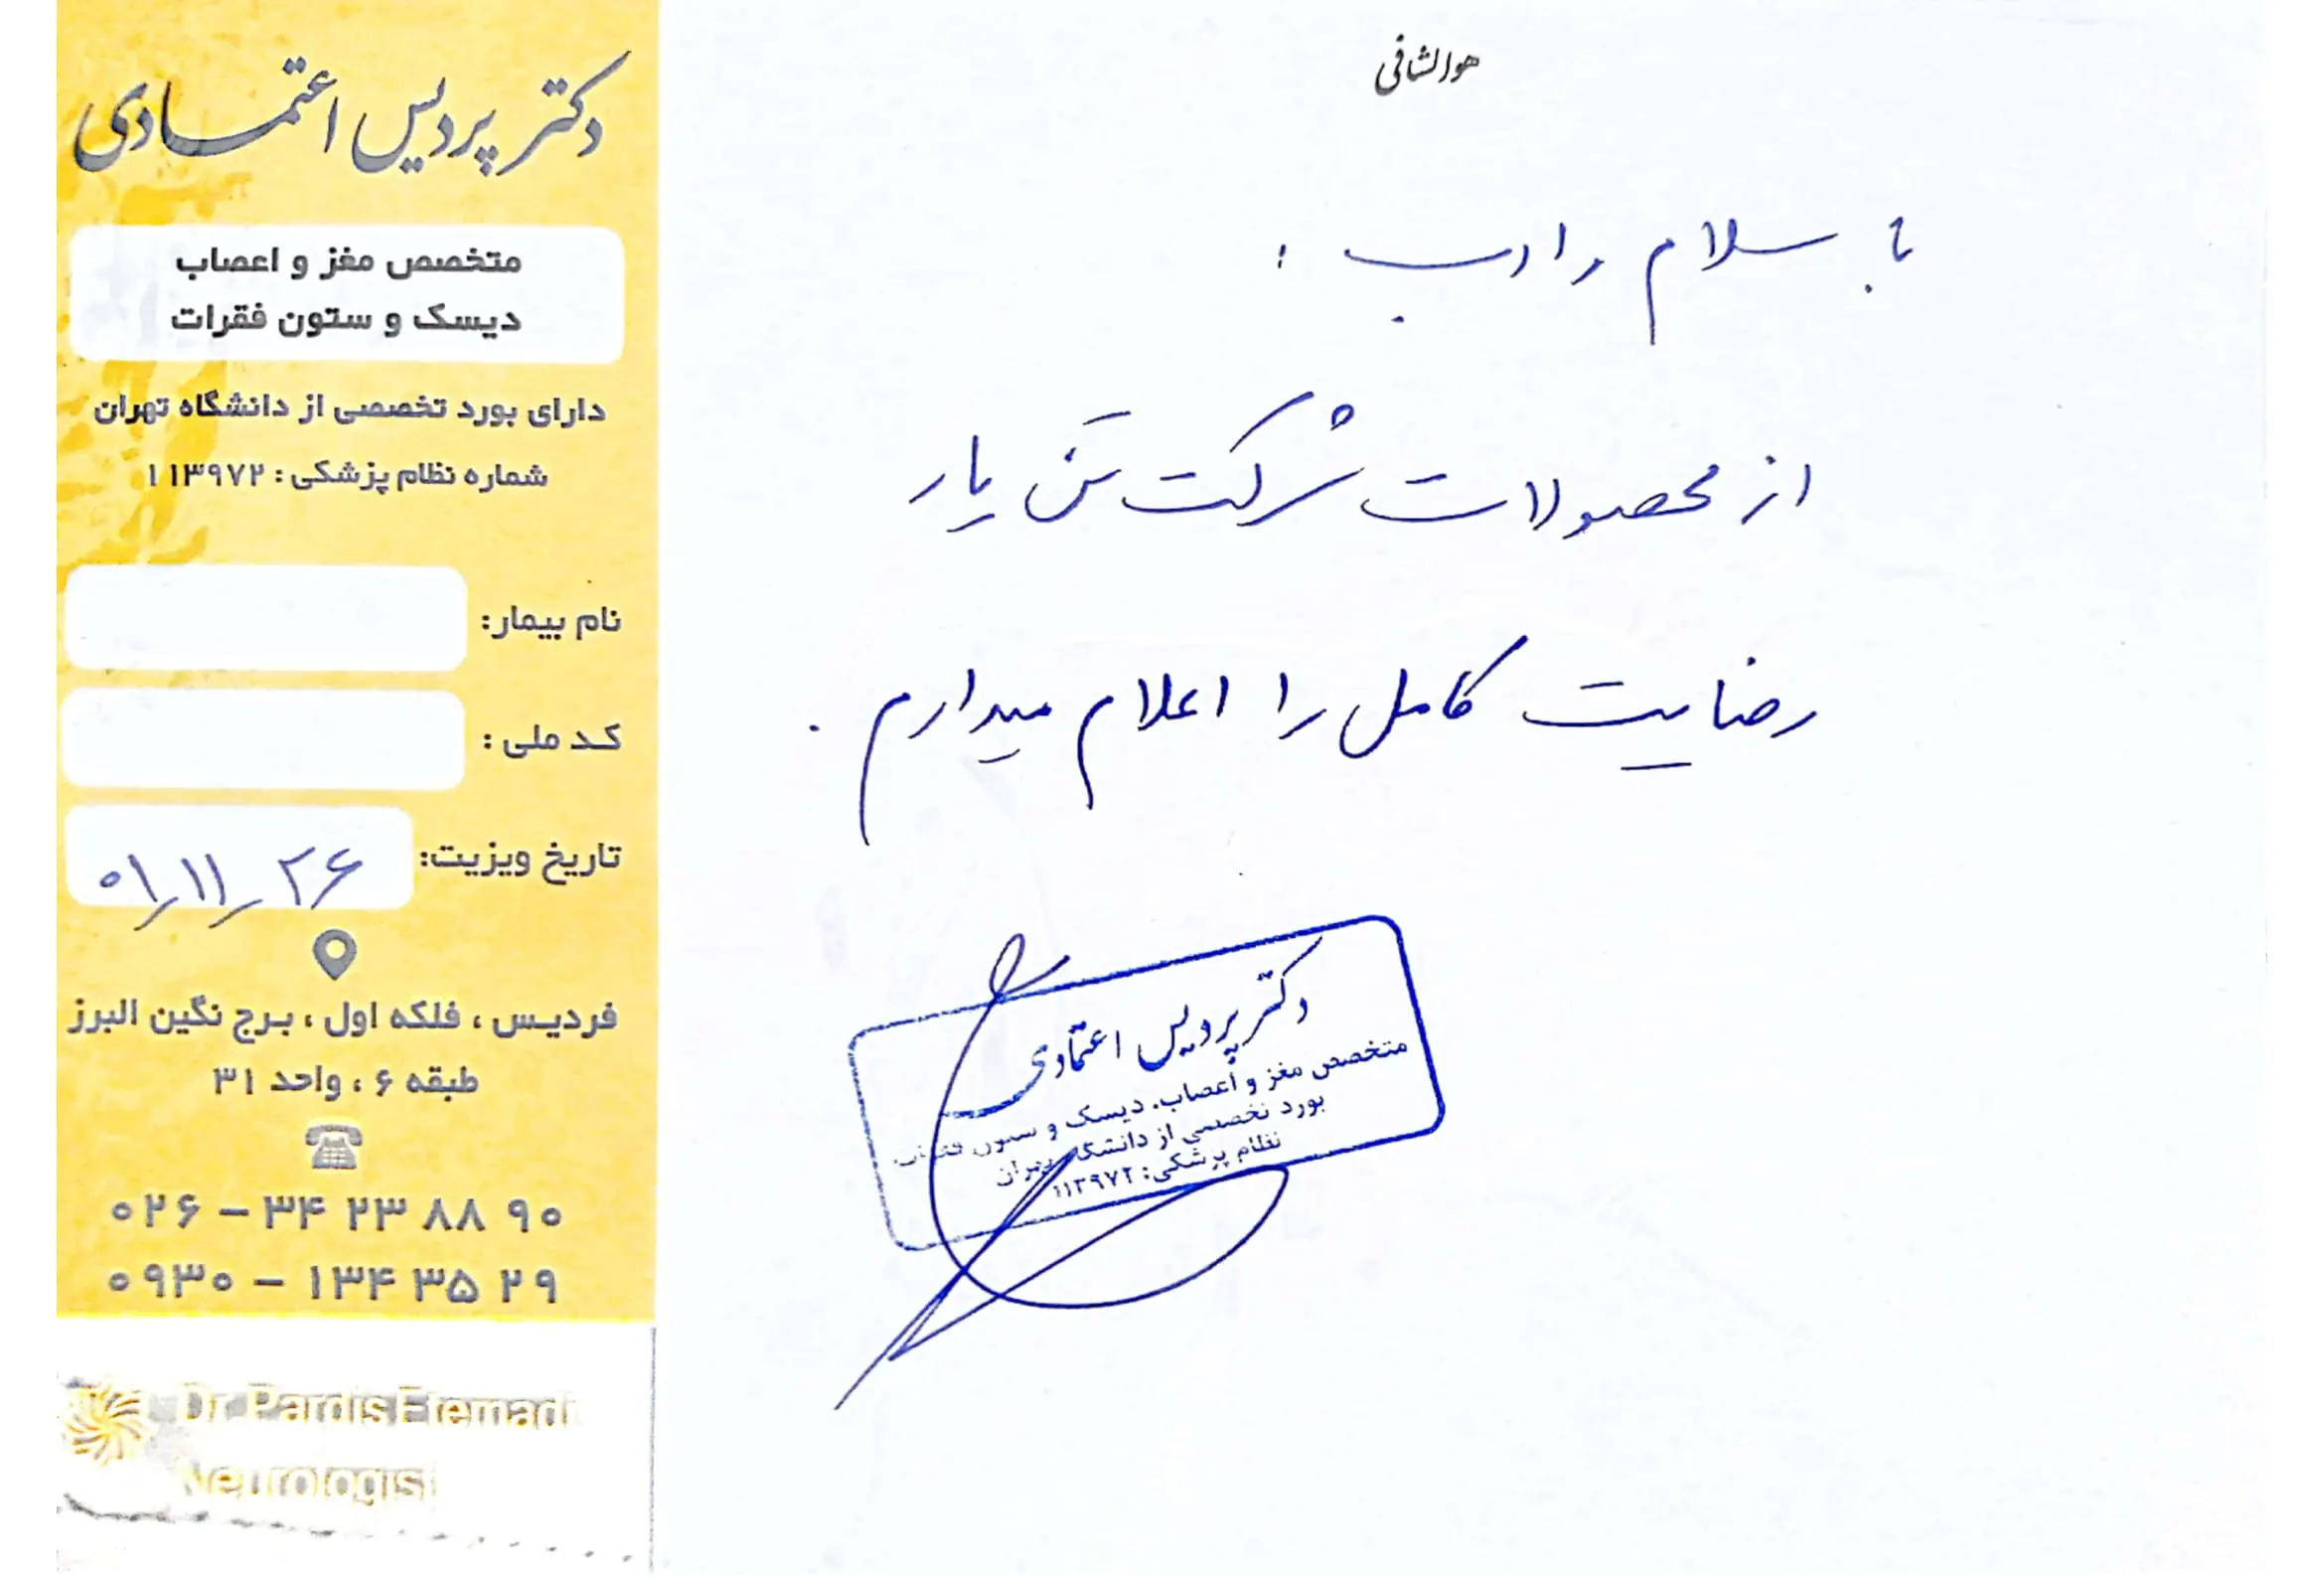 هوالشافی
با سلام و ادب :
از محصولات شرکت تَن یار
رضایت کامل را اعلام میدارم .
دکتر پردیس اعتمادی
متخصص مغز و اعصاب، دیسک و ستون فقرات
بورد تخصصی از دانشگاه تهران
نظام پزشکی: ۱۱۳۹۷۲
دکتر پردیس اعتمادی
متخصص مغز و اعصاب
دیسک و ستون فقرات
دارای بورد تخصصی از دانشگاه تهران
شماره نظام پزشکی: ۱۱۳۹۷۲
نام بیمار:
کد ملی :
تاریخ ویزیت: ۰۱/۱۱/۲۶
فردیس ، فلکه اول ، برج نگین البرز
طبقه ۶ ، واحد ۳۱
۰۲۶ – ۳۴ ۲۳ ۸۸ ۹۰
۰۹۳۰ – ۱۳۴ ۳۵ ۲۹
Dr Pardis Etemadi
Neurologist